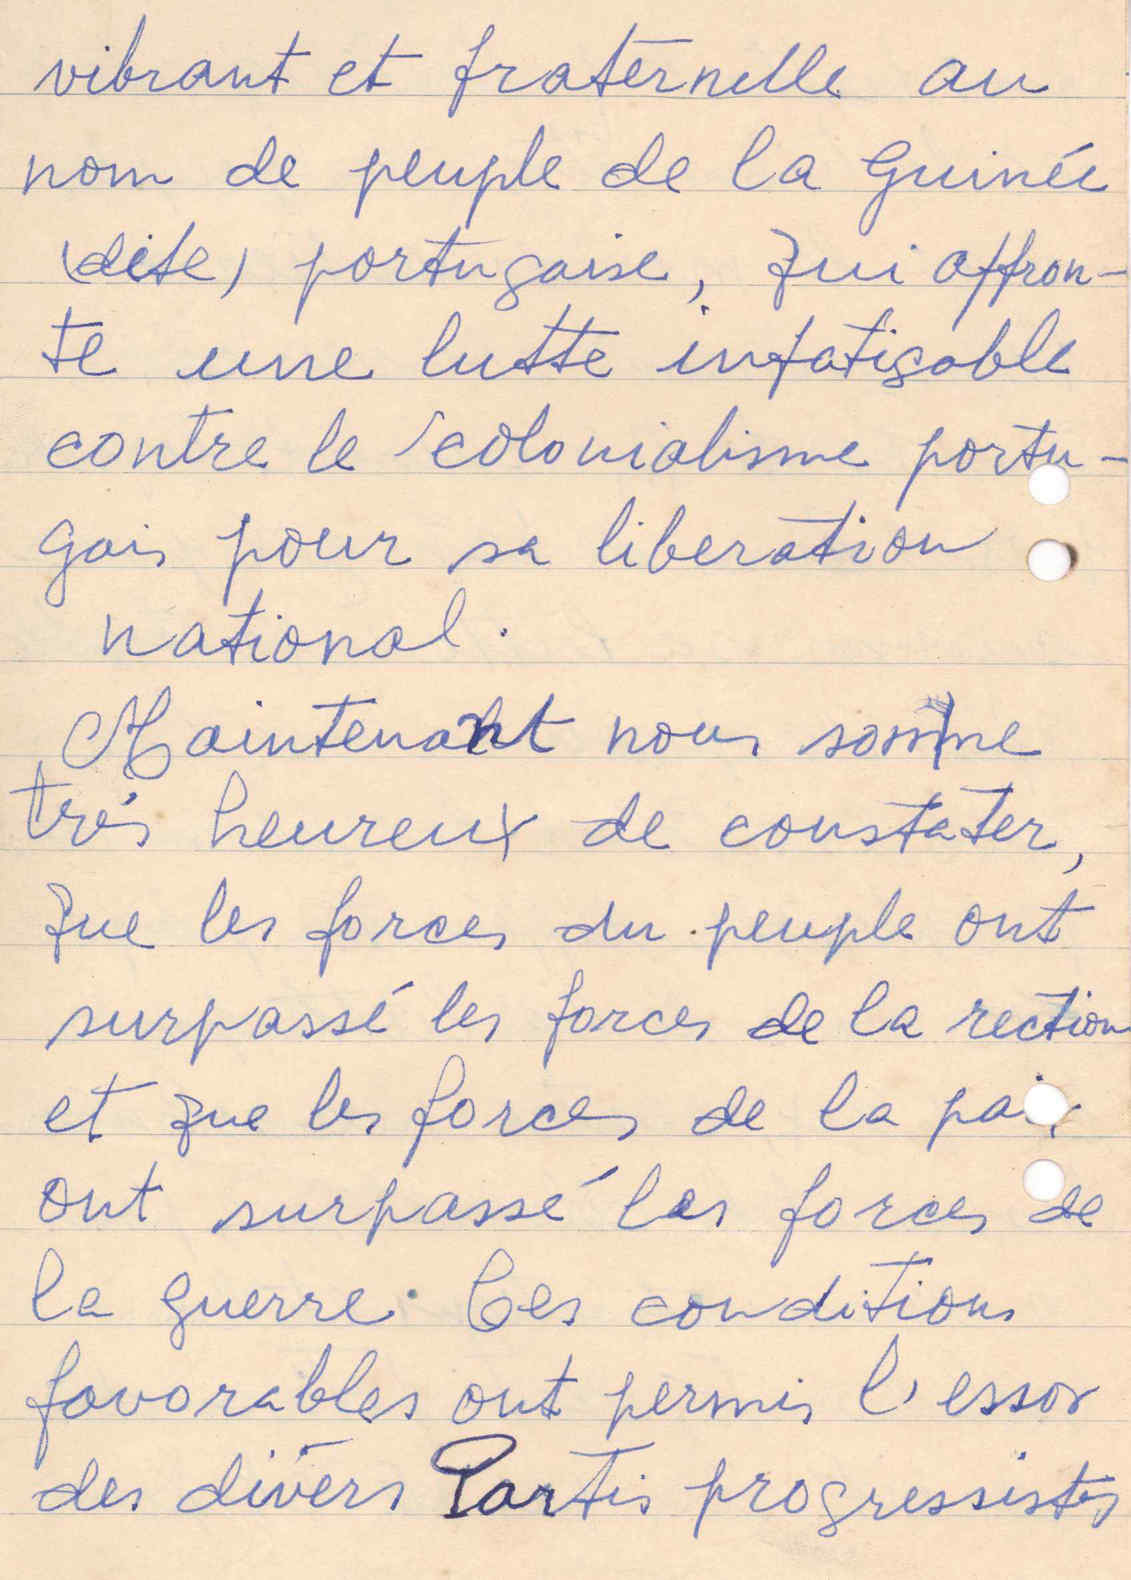 vibrant et fraternelle au
nom de peuple de la Guinée
(dite) portugaise, qui affron-
te une lutte infatigable
contre le colonialisme portu-
gais pour sa liberation
national.
Maintenant nous somme
très heureux de constater,
que les forces du peuple ont
surpassé les forces de la rection
et que les forces de la paix
ont surpassé les forces de
la guerre. Ces conditions
favorables ont permis l'essor
des divers Partis progressistes